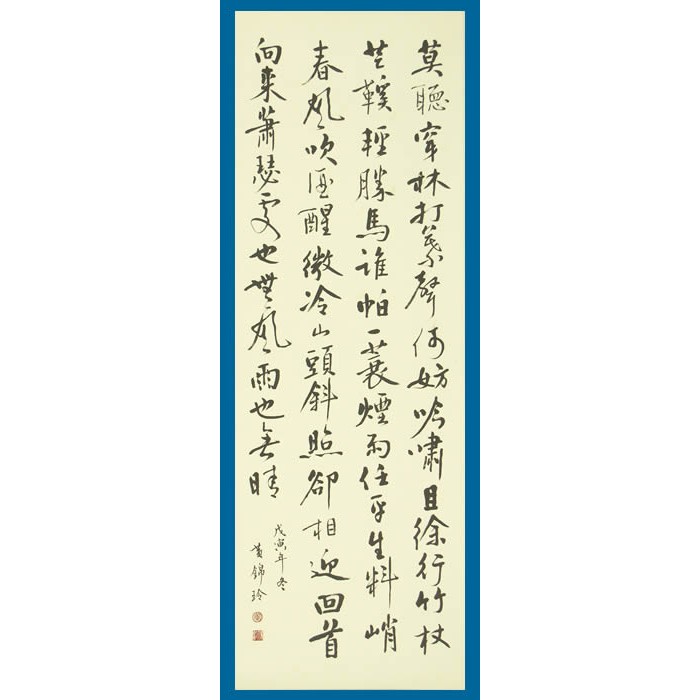 莫聽穿林打葉聲何妨吟嘯且徐行竹杖
芒鞵輕勝馬誰怕一蓑煙雨任平生料峭
春風吹酒醒微冷山頭斜照卻相迎回首
向來蕭瑟處也無風雨也無晴
戊寅年冬
黃錦玲